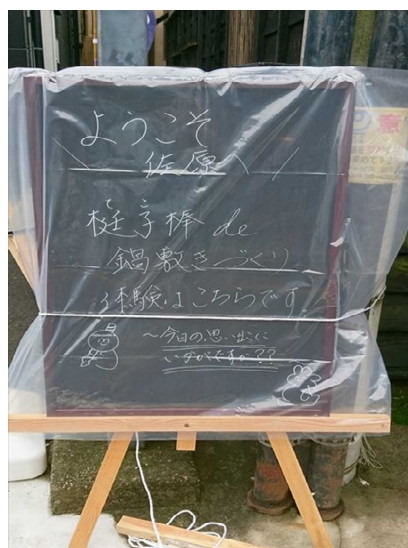 ようこそ
\ 佐原へ /
梃子棒 de
鍋敷きづくり
体験はこちらです
～今日の思い出に
いかがですか??